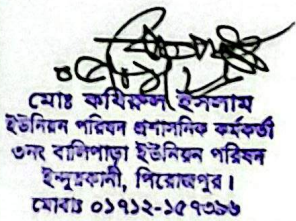 মোঃ কবিরুল ইসলাম
ইউনিয়ন পরিষদ প্রশাসনিক কর্মকর্তা
৩নং বালিপাড়া ইউনিয়ন পরিষদ
ইন্দুরকানী, পিরোজপুর।
মোবাঃ ০১৭১২-১৫৭৩৯৬